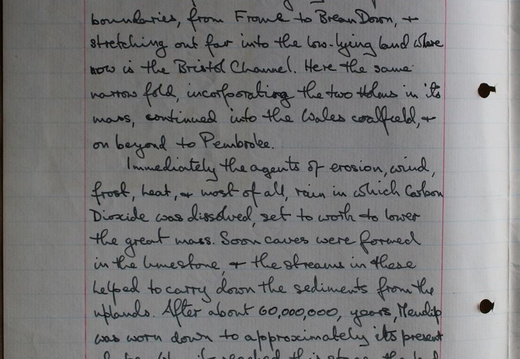 boundaries, from Frome to Brean Down, +
stretching out far into the low-lying land where
now is the Bristol Channel. Here the same
narrow fold, incorporating the two Holms in its
mass, continued into the Wales coalfield, +
on beyond to Pembroke.
Immediately the agents of erosion, wind,
frost, heat, + most of all, rain in which Carbon
Dioxide was dissolved, set to work to lower
the great mass. Soon caves were formed
in the limestone, + the streams in these
helped to carry down the sediments from the
uplands. After about 60,000,000, years, Mendip
was worn down to approximately its present